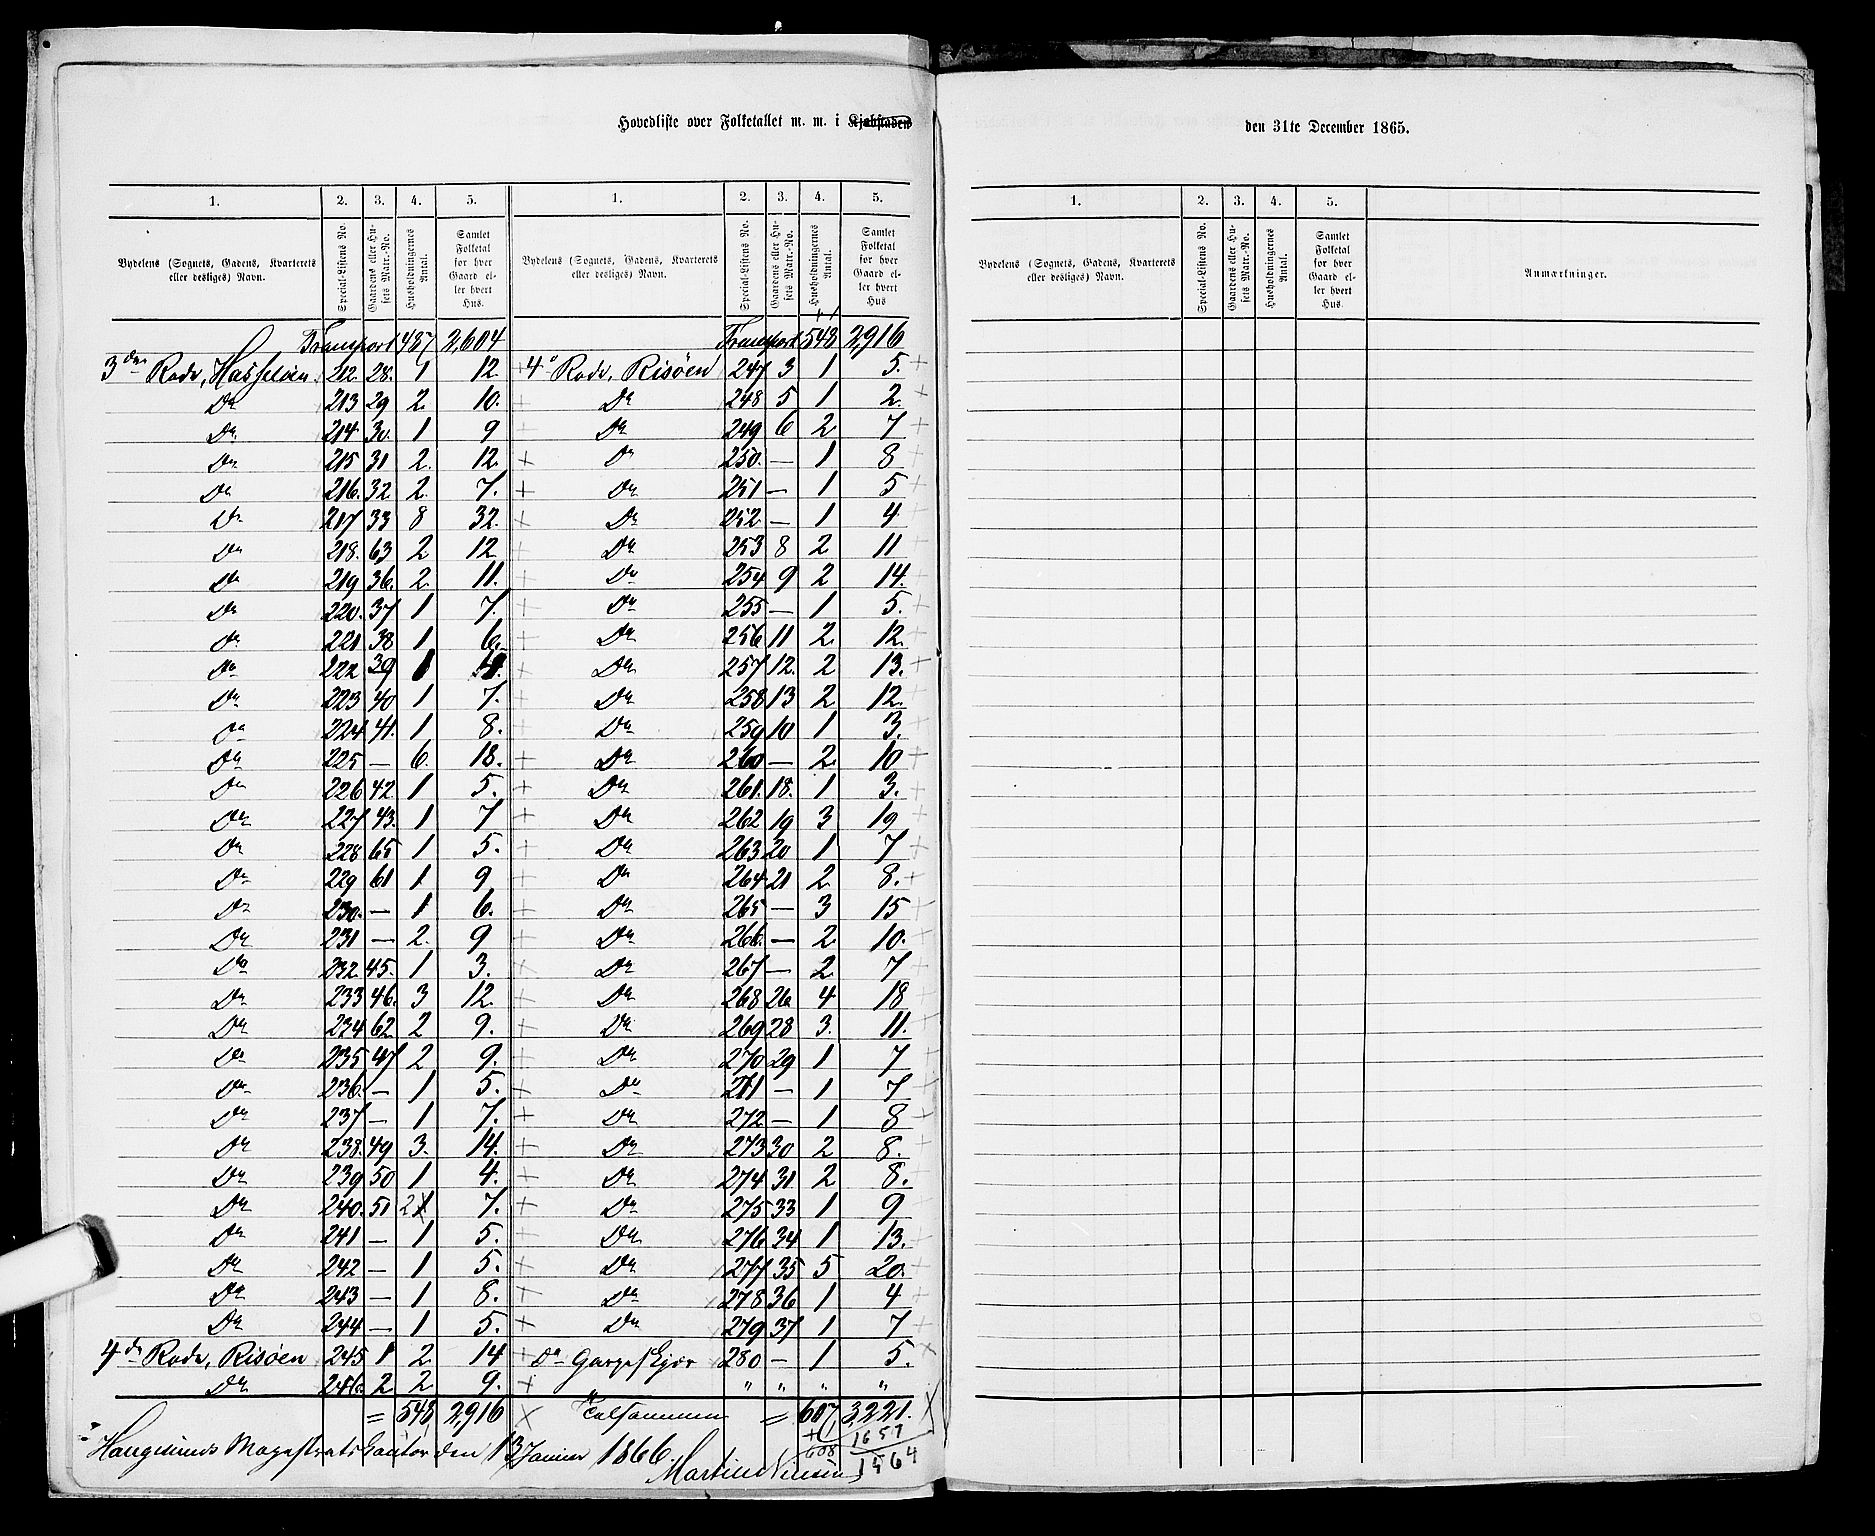 Hovedliste over Folketallet m. m. i Kjøbstaden den 31te December 1865.
1. 2. 3. 4. 5. 1. 2. 3. 4. 5.
Bydelens (Sognets, Gadens, Kvarterets eller desliges) Navn. Special-Listens No. Gaardens eller Husets Matr.-No. Husholdningernes Antal. Samlet Folketal for hver Gaard eller hvert Hus. Bydelens (Sognets, Gadens, Kvarterets eller desliges) Navn. Special-Listens No. Gaardens eller Husets Matr.-No. Husholdningernes Antal. Samlet Folketal for hver Gaard eller hvert Hus
Transport 487 2,604 Transport 548 2,916
3die Rode, Hasseløen 212. 28. 1 12 + 4de Rode, Risøen 247 3 1 5. +
Do 213 29 2. 10. Do 248 5 1 2. +
Do 214 30. 1 9 Do 249 6 2 7 +
Do 215 31 2. 12. + Do 250. — 1 8
Do 216. 32 2. 7. + Do 251 — 1 5
Do 217 33 8 32. + Do 252 — 1 4
Do 218. 63 2 12 + Do 253 8 2 11
Do 219 36. 2. 11. + Do 254 9 2 14.
Do 220. 37 1 7. + Do 255 — 1 5. +
Do 221 38 1 6. + Do 256 11 2 12.
Do 222 39 1 + Do 257 12. 2 13. +
Do 223 40 1 7. + Do 258 13 2 12.
Do 224 41. 1 8. + Do 259 10 1 3.
Do 225 — 6. 18. + Do 260 — 2. 10 +
Do 226 42. 1 5. + Do 261. 18. 1 3. +
Do 227 43. 1 7 + Do 262 19 3 19
Do 228 65 1 5. + Do 263 20 1 7 +
Do 229 61 1 9 + Do 264 21 2 8. +
Do 230. — 1 6. + Do 265 — 3 15
Do 231 — 2. 9 + Do 266. — 2 10.
Do 232. 45. 1 3. + Do 267 — 2 7
Do 233 46. 3 12. + Do 268 26 4 18
Do 234 62 2 9. + Do 269 28 3. 11.
Do 235 47 2 9. + Do 270 29 1 7
Do 236. — 1 5. + Do 271 — 1 7
Do 237 — 1 7. + Do 272 — 1 8 +
Do 238. 49 3. 14. + Do 273 30 2 8.
Do 239 50 1 4. + Do 274 31 2 8.
Do 240. 51 2 7. + Do 275 33 1 9
Do 241 — 1 5. + Do 276 34 1 13.
Do 242 — 1 5. + Do 277 35 5 20. +
Do 243 — 1 8. + Do 278 36 1 4 +
Do 244 — 1 5. + Do 279 37 1 7 +
4de Rode, Risøen 245 1 2. 14 + Do 280 — 1 5. x
Do 246. 2 2 9. + " " " "
= 548 2,916 x Tilsammen = 607 3,221. x
Haugesunds Magistratskontor den 13 Januar 1866.
+1 608 1657 1564
1. 2. 3. 4. 5.
Bydelens (Sognets, Gadens, Kvarterets eller desliges) Navn. Special-Listens No. Gaardens eller Husets Matr.-No. Husholdningernes Antal. Samlet Folketal for hver Gaard eller hvert Hus. Anmærkninger.